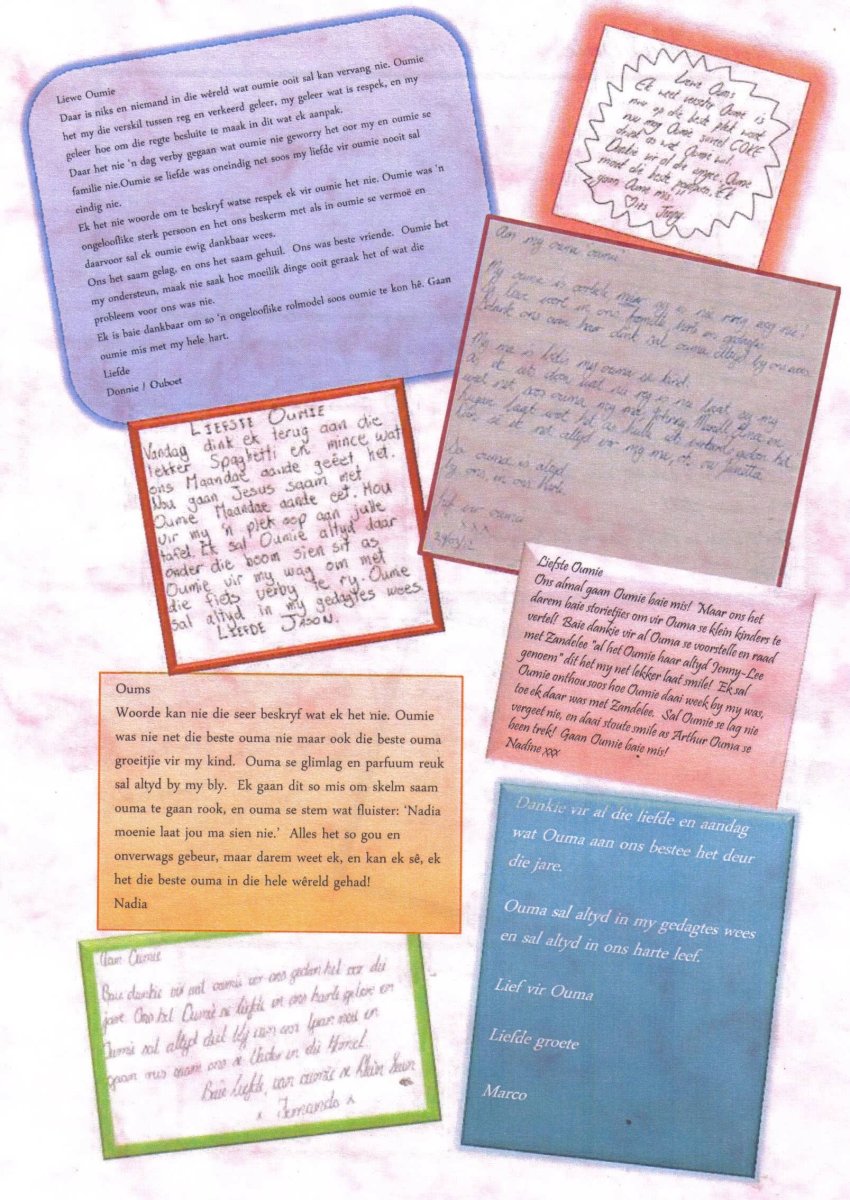 Liewe Oumie
Daar is niks en niemand in die wêreld wat oumie ooit sal kan vervang nie. Oumie
het my die verskil tussen reg en verkeerd geleer, my geleer wat is respek, en my
geleer hoe om die regte besluite te maak in dit wat ek aanpak.
Daar het nie 'n dag verby gegaan wat oumie nie geworry het oor my en oumie se
familie nie.Oumie se liefde was oneindig net soos my liefde vir oumie nooit sal
eindig nie.
Ek het nie woorde om te beskryf watse respek ek vir oumie het nie. Oumie was 'n
ongelooflike sterk persoon en het ons beskerm met als in oumie se vermoë en
daarvoor sal ek oumie ewig dankbaar wees.
Ons het saam gelag, en ons het saam gehuil. Ons was beste vriende. Oumie het
my ondersteun, maak nie saak hoe moeilik dinge ooit geraak het of wat die
probleem voor ons was nie.
Ek is baie dankbaar om so 'n ongelooflike rolmodel soos oumie te kon hê. Gaan
oumie mis met my hele hart.
Liefde
Donnie / Ouboet
Liewe Oums
Ek weet Oumie is
nou op die beste plek want
nou mag Oumie soveel COKE
drink as wat Oumie wil.
Dankie vir al die Oumie
maak die beste Ek
gaan Oumie mis
Jenny
Aan my ouma 'oumie'
My oumie is
Sy lewe voort in ons familie, harte en gedagtes
sal ouma altyd by ons wees
My ma is Liefie my ouma se kind.
net soos ouma, my ma
So ouma is altyd
by ons, in ons hart.
Lief vir ouma
x x x
LIEFSTE OUMIE
Vandag dink ek terug aan die
lekker Spaghetti en mince wat
ons Maandae aande geëet het.
Nou gaan Jesus saam met
Oumie Maandae aande eet. Hou
vir my 'n plek oop aan julle
tafel. Ek sal Oumie altyd daar
onder die boom sien sit as
Oumie vir my wag om met
die fiets verby te ry. Oumie
sal altyd in my gedagtes wees.
LIEFDE JASON.
Liefste Oumie
Ons almal gaan Oumie baie mis! Maar ons het
darem baie storietjies om vir Ouma se klein kinders te
vertel! Baie dankie vir al Ouma se voorstelle en raad
met Zandelee "al het Oumie haar altyd Jenny-Lee
genoem" dit het my net lekker laat smile! Ek sal
Oumie onthou soos hoe Oumie daai week by my was,
toe ek daar was met Zandelee. Sal Oumie se lag nie
vergeet nie, en daai stoute smile as Arthur Ouma se
been trek! Gaan Oumie baie mis!
Nadine xxx
Oums
Woorde kan nie die seer beskryf wat ek het nie. Oumie
was nie net die beste ouma nie maar ook die beste ouma
groeitjie vir my kind. Ouma se glimlag en parfuum reuk
sal altyd by my bly. Ek gaan dit so mis om skelm saam
ouma te gaan rook, en ouma se stem wat fluister: 'Nadia
moenie laat jou ma sien nie.' Alles het so gou en
onverwags gebeur, maar darem weet ek, en kan ek sê, ek
het die beste ouma in die hele wêreld gehad!
Nadia
Dankie vir al die liefde en aandag
wat Ouma aan ons bestee het deur
die jare.
Ouma sal altyd in my gedagtes wees
en sal altyd in ons harte leef.
Lief vir Ouma
Liefde groete
Marco
Oumie
Baie dankie vir wat oumie vir ons gedoen het oor die
jare. Ons het Oumie se liefde in ons harte en
Oumie sal altyd deel bly van ons
in die Hemel.
Baie Liefde, van oumie se Klein Seun
x Fernando x